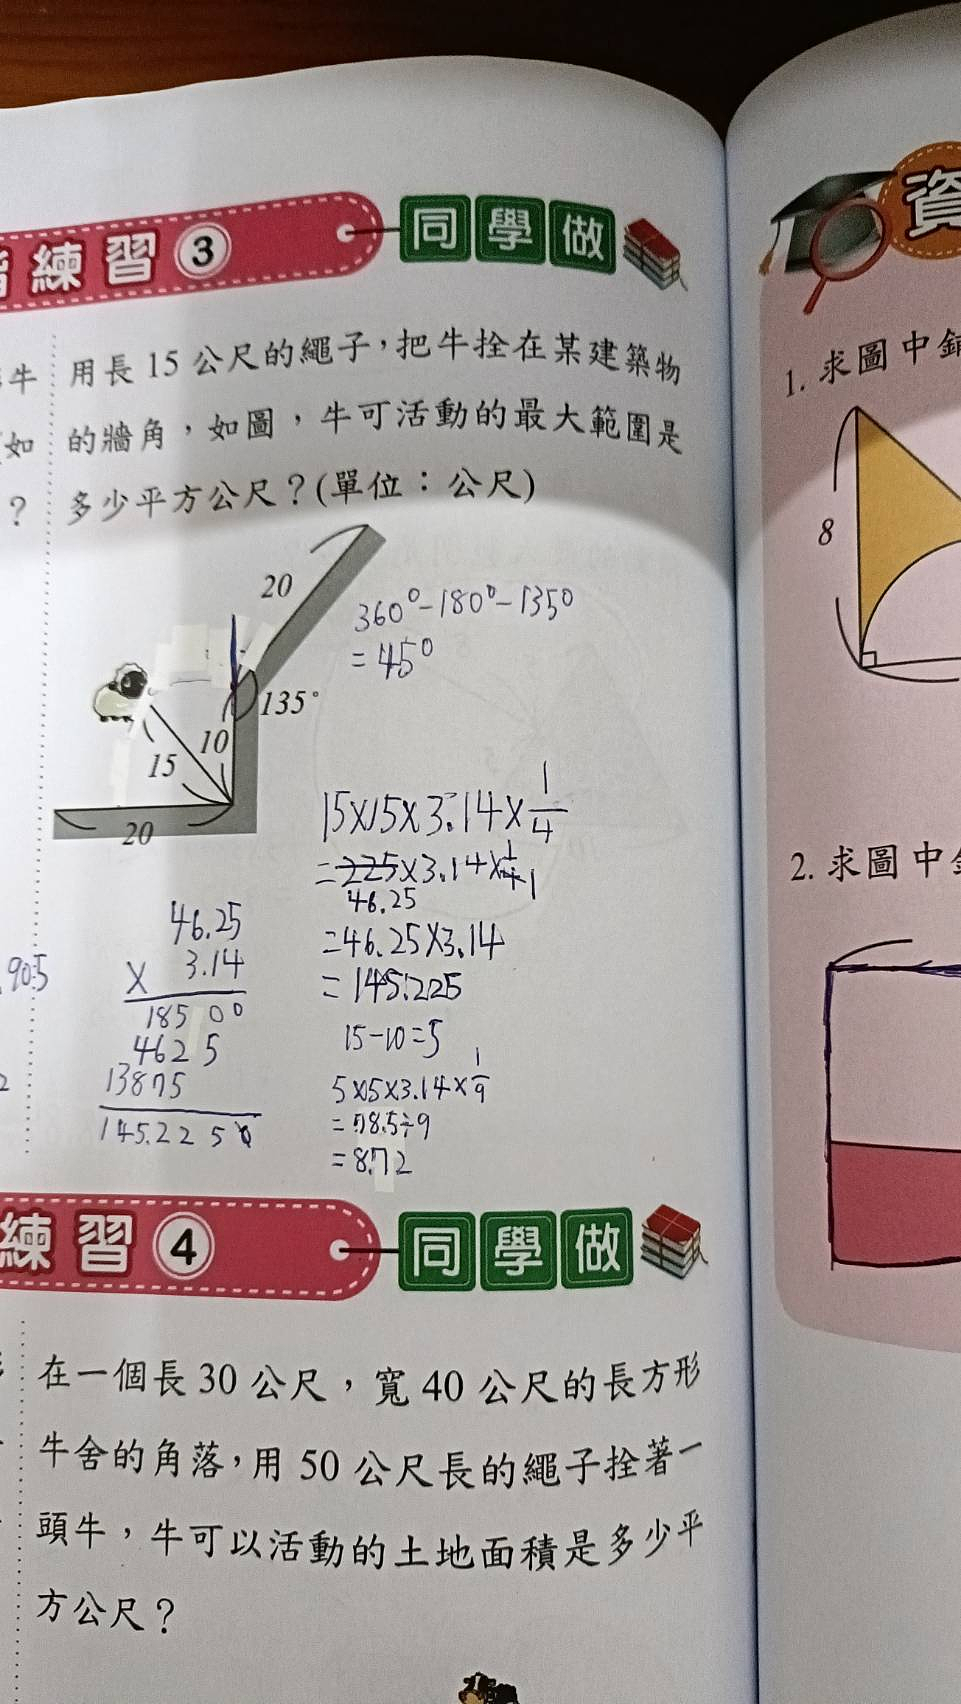 練習 3
同學做
資
牛
用長 15 公尺的繩子，把牛拴在某建築物
如
的牆角，如圖，牛可活動的最大範圍是
？
多少平方公尺？(單位：公尺)
20
135°
10
15
20
360°-180°-135°
=45°
15×15×3.14×1/4
=225×3.14×1/4 1
46.25
=46.25×3.14
=145.225
15-10=5
5×5×3.14×1/9
=78.5÷9
=8.72
46.25
× 3.14
185 00
462 5
13875
145.22 50
905
1. 求圖中
8
2. 求圖中
練習 4
同學做
在一個長 30 公尺，寬 40 公尺的長方形
牛舍的角落，用 50 公尺長的繩子拴著一
頭牛，牛可以活動的土地面積是多少平
方公尺？